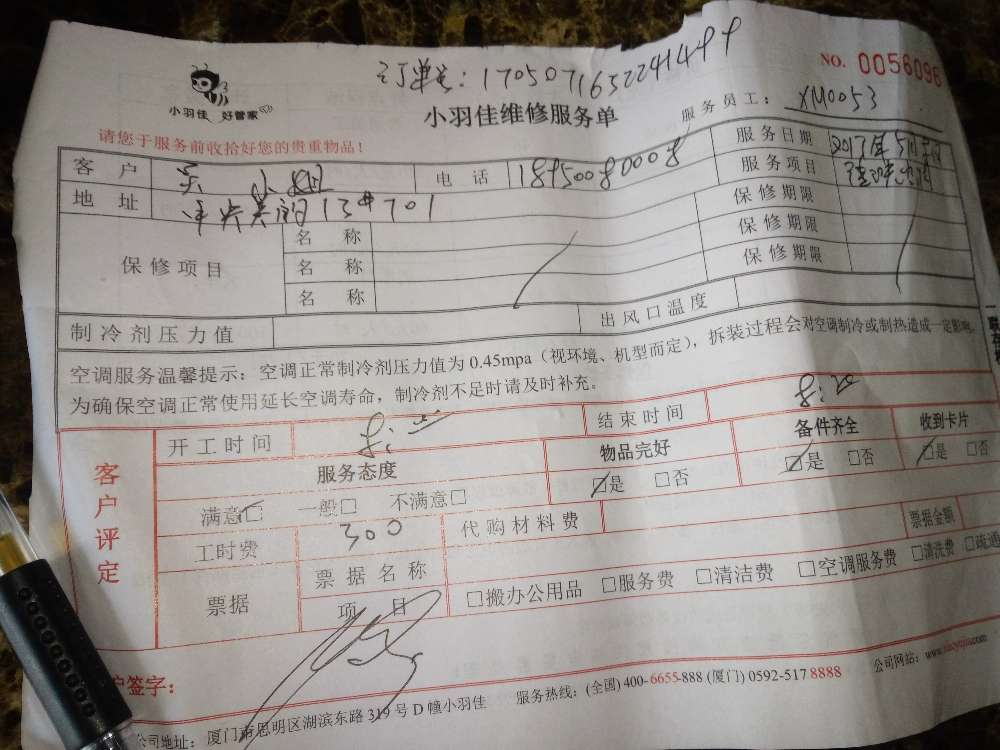 订单号：1705071652241499
NO. 0056096
小羽佳 好管家
小羽佳维修服务单
服务员工： XM0053
请您于服务前收拾好您的贵重物品！
客户 小姐 电话 18950080008 服务日期
地址 13#701 服务项目
保修项目 名称 保修期限
名称 保修期限
名称 保修期限
制冷剂压力值 出风口温度
空调服务温馨提示：空调正常制冷剂压力值为 0.45mpa（视环境、机型而定），拆装过程会对空调制冷或制热造成一定影响，
为确保空调正常使用延长空调寿命，制冷剂不足时请及时补充。
客户评定
开工时间 结束时间 8:20
服务态度 物品完好 备件齐全 收到卡片
满意□ 一般□ 不满意□ □是 □否 □是 □否 □是 □否
工时费 300 代购材料费 票据金额
票据 票据名称 项目 □搬办公用品 □服务费 □清洁费 □空调服务费 □清洗费 □疏通
户签字：
公司地址：厦门市思明区湖滨东路 319 号 D 幢小羽佳 服务热线：(全国) 400-6655-888 (厦门) 0592-517 8888 公司网站：